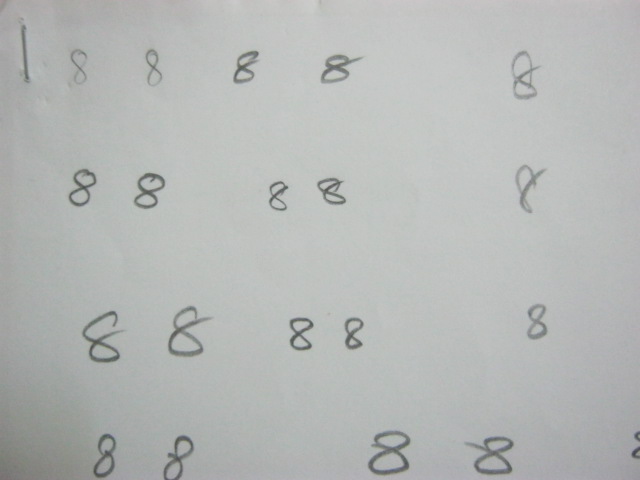 8 8 8 8 8
8 8 8 8 8
8 8 8 8 8
8 8 8 8